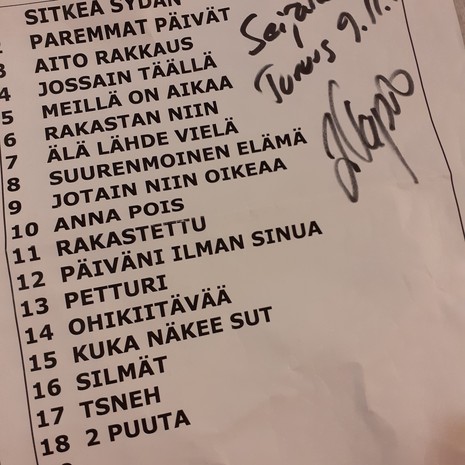 SITKEÄ SYDÄN
2 PAREMMAT PÄIVÄT
3 AITO RAKKAUS
4 JOSSAIN TÄÄLLÄ
5 MEILLÄ ON AIKAA
6 RAKASTAN NIIN
7 ÄLÄ LÄHDE VIELÄ
8 SUURENMOINEN ELÄMÄ
9 JOTAIN NIIN OIKEAA
10 ANNA POIS
11 RAKASTETTU
12 PÄIVÄNI ILMAN SINUA
13 PETTURI
14 OHIKIITÄVÄÄ
15 KUKA NÄKEE SUT
16 SILMÄT
17 TSNEH
18 2 PUUTA
9.11.